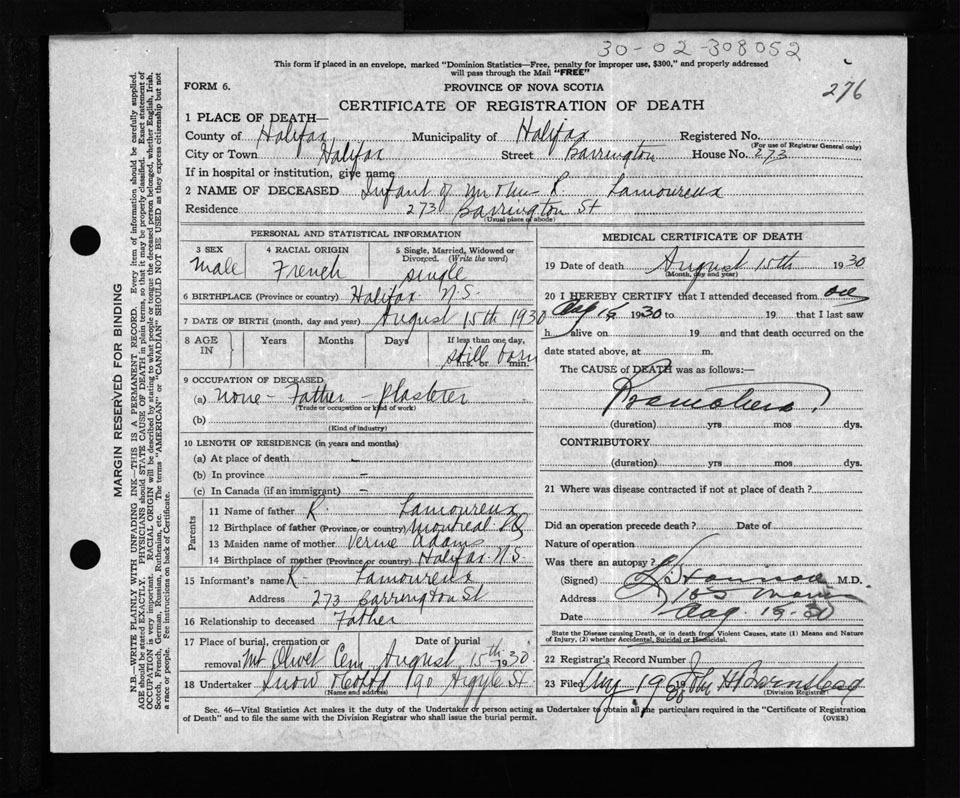 30-02-308052
276
This form if placed in an envelope, marked "Dominion Statistics—Free, penalty for improper use, $300," and properly addressed
will pass through the Mail "FREE"
FORM 6.
PROVINCE OF NOVA SCOTIA
CERTIFICATE OF REGISTRATION OF DEATH
1 PLACE OF DEATH—
County of Halifax Municipality of Halifax Registered No.
(For use of Registrar General only)
City or Town Halifax Street Barrington House No. 273
If in hospital or institution, give name
2 NAME OF DECEASED Infant of Mr & Mrs R. Lamoureux
Residence 273 Barrington St
(Usual place of abode)
PERSONAL AND STATISTICAL INFORMATION
3 SEX Male
4 RACIAL ORIGIN French
5 Single, Married, Widowed or
Divorced. (Write the word)
single
6 BIRTHPLACE (Province or country) Halifax N.S.
7 DATE OF BIRTH (month, day and year) August 15th 1930
8 AGE IN Years Months Days If less than one day,
still born
hrs. or min.
9 OCCUPATION OF DECEASED
(a) None - Father - Plasterer
(Trade or occupation or kind of work)
(b)
(Kind of industry)
10 LENGTH OF RESIDENCE (in years and months)
(a) At place of death –
(b) In province –
(c) In Canada (if an immigrant) –
Parents
11 Name of father R. Lamoureux
12 Birthplace of father (Province or country) Montreal P.Q
13 Maiden name of mother Vernie Adams
14 Birthplace of mother (Province or country) Halifax N.S.
15 Informant's name R. Lamoureux
Address 273 Barrington St
16 Relationship to deceased Father
17 Place of burial, cremation or Date of burial
removal Mt Olivet Cem August 15th 1930
18 Undertaker Snow & Co Ltd 90 Argyle St
(Name and address)
MEDICAL CERTIFICATE OF DEATH
19 Date of death August 15th 1930
(Month, day and year)
20 I HEREBY CERTIFY that I attended deceased from
Aug 15 1930 to 19 that I last saw
h alive on 19 and that death occurred on the
date stated above, at m.
The CAUSE of DEATH was as follows:—
(duration) yrs mos dys.
CONTRIBUTORY
(duration) yrs mos dys.
21 Where was disease contracted if not at place of death?
Did an operation precede death? Date of
Nature of operation
Was there an autopsy?
(Signed) M.D.
Address 165 Morris
Date Aug 19-30
State the Disease causing Death, or in death from Violent Causes, state (1) Means and Nature
of Injury, (2) whether Accidental, Suicidal or Homicidal.
22 Registrar's Record Number
23 Filed Aug 19 1930 John H Barnstead
(Division Registrar)
Sec. 46—Vital Statistics Act makes it the duty of the Undertaker or person acting as Undertaker to obtain all the particulars required in the "Certificate of Registration
of Death" and to file the same with the Division Registrar who shall issue the burial permit.
(OVER)
MARGIN RESERVED FOR BINDING
N.B.—WRITE PLAINLY WITH UNFADING INK—THIS IS A PERMANENT RECORD. Every item of information should be carefully supplied.
AGE should be stated EXACTLY. PHYSICIANS should STATE CAUSE OF DEATH in plain terms, so that it may be properly classified. Exact statement of
OCCUPATION is very important. RACIAL ORIGIN will be described by stating to what people or tongue the deceased person belonged, whether English, Irish,
Scotch, French, German, Russian, Ruthenian, etc. The terms "AMERICAN" or "CANADIAN" SHOULD NOT BE USED as they express citizenship but not
a race or people. Fee instructions on back of Certificate.